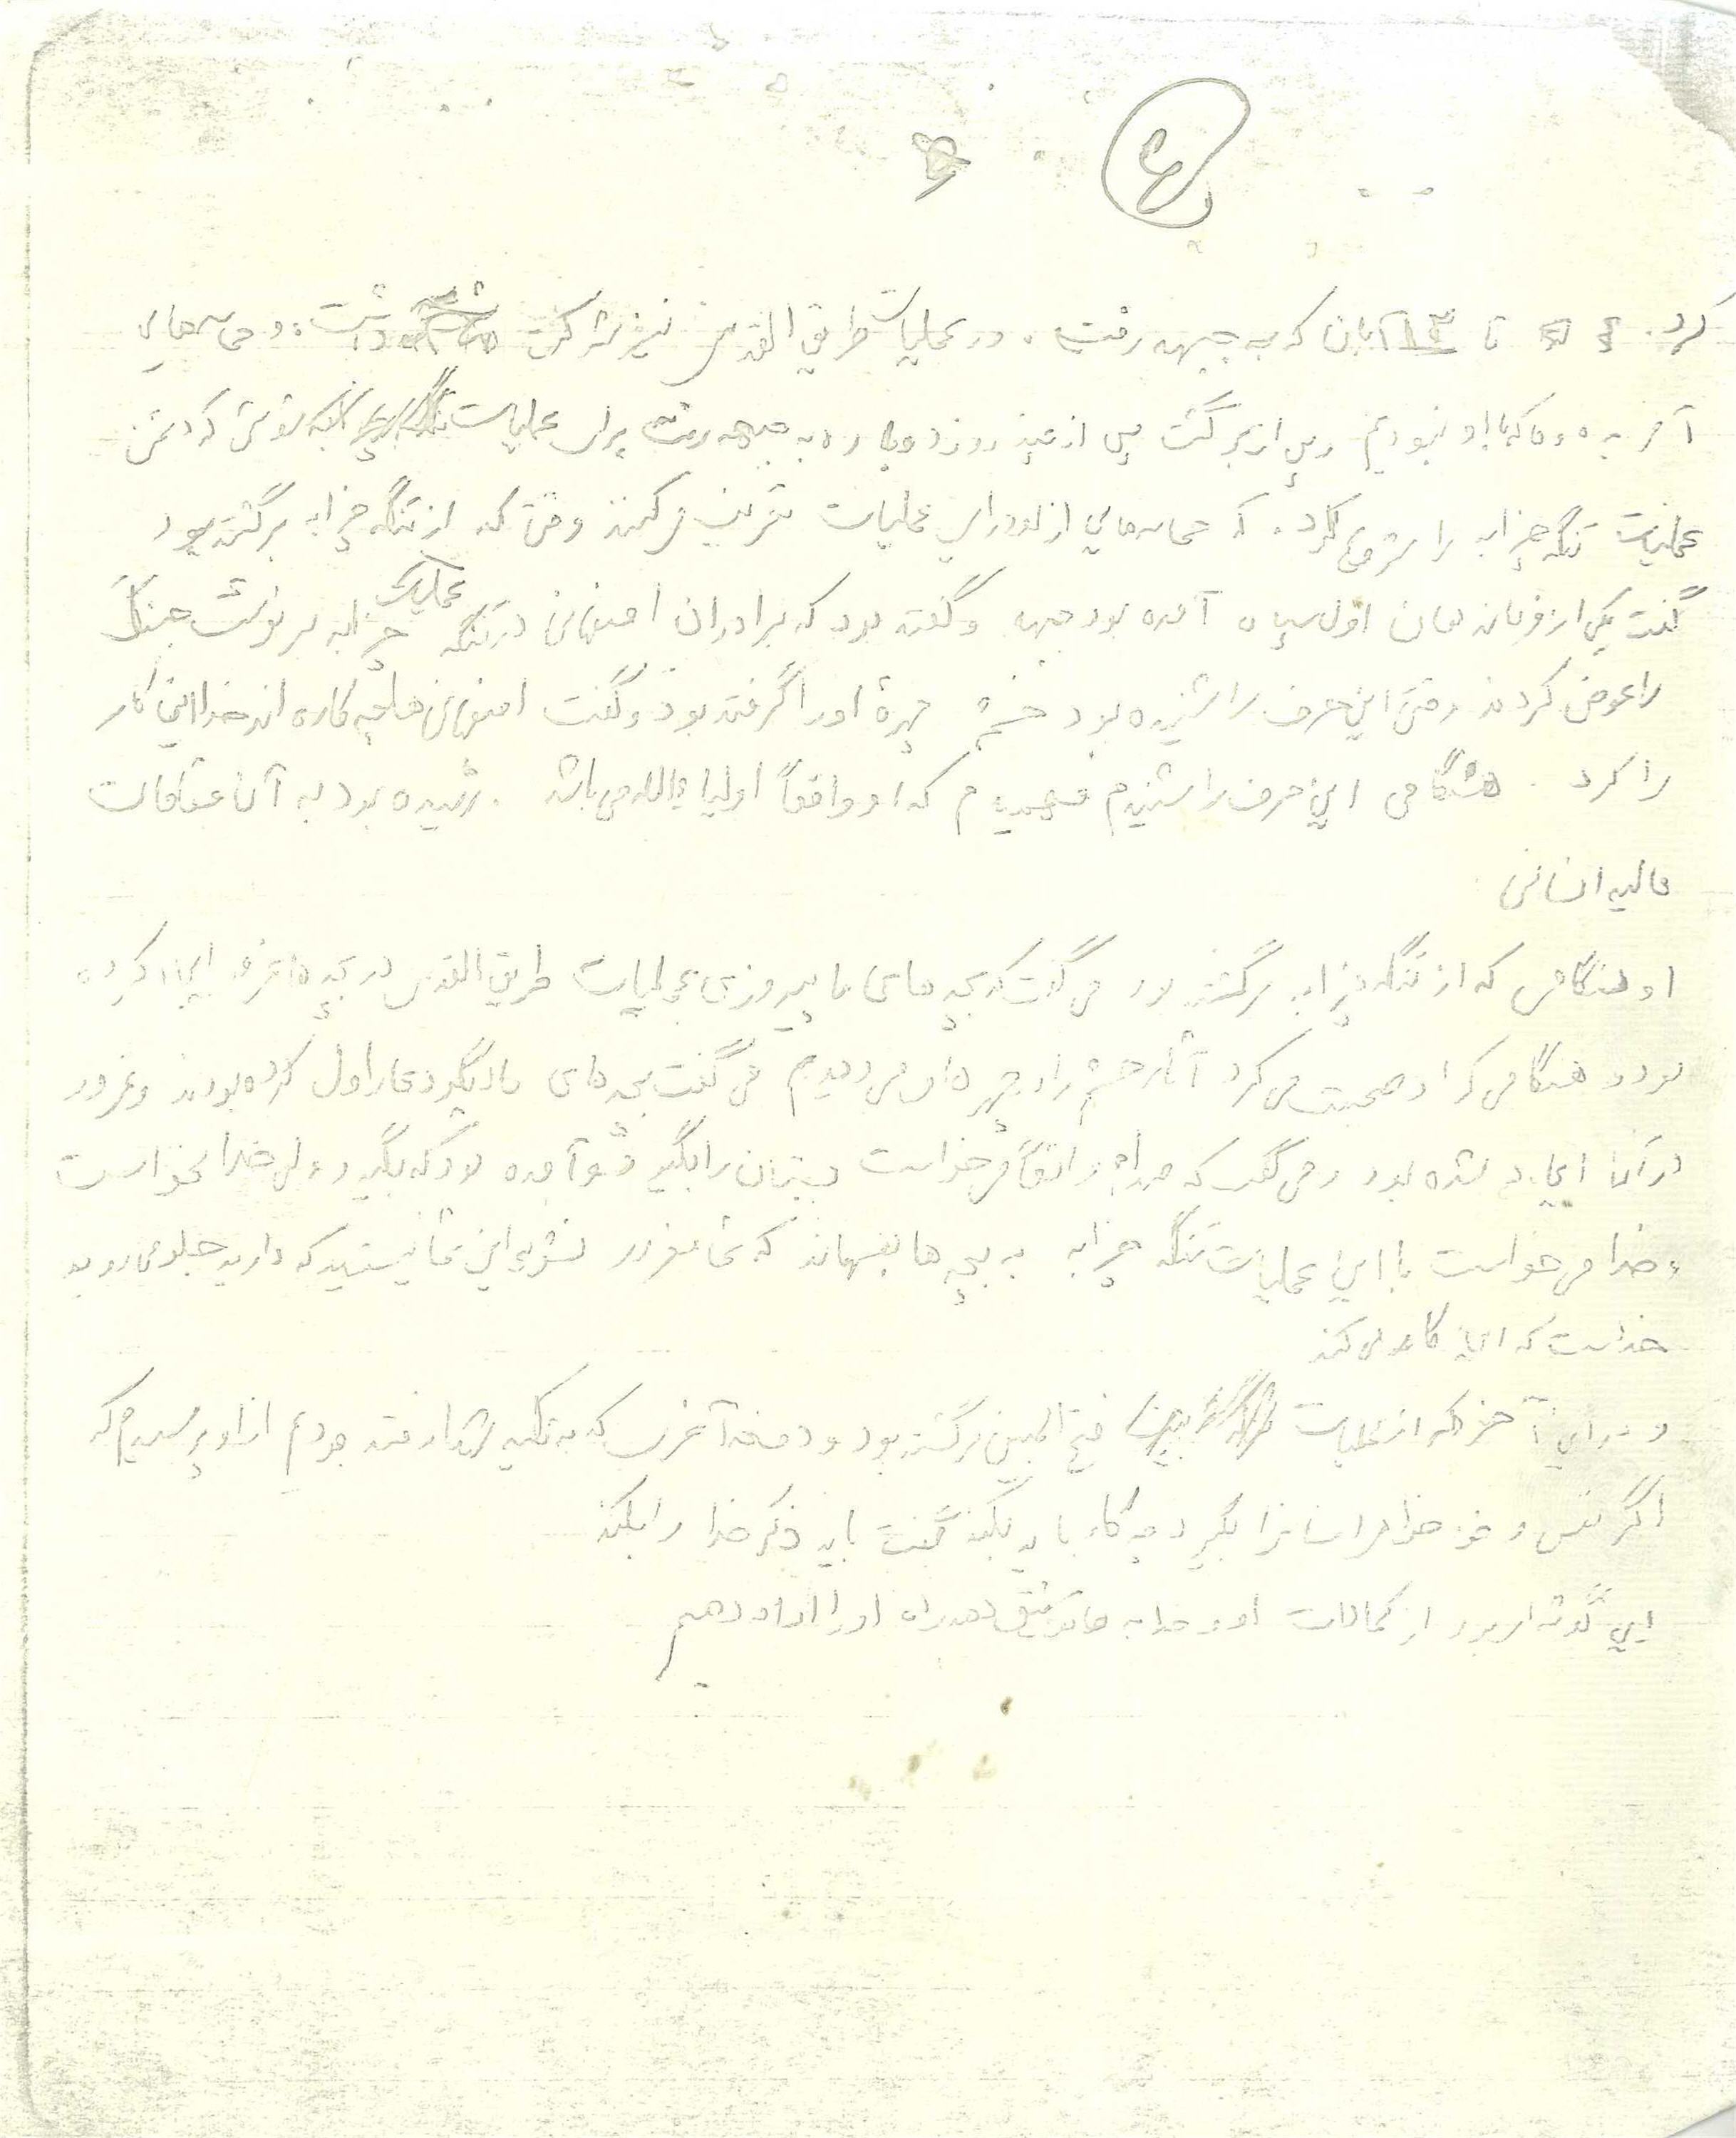 کرد. تا ۱۳ آبان که به جبهه رفت. در عملیات طریق القدس نیز شرکت داشت. و حماسه‌های
آفریده و ما که با او نبودیم و پس از برگشت پس از چند روز دوباره به جبهه رفت برای عملیات که دشمن
عملیات تنگه چزابه را شروع کرد. که حماسه‌هایی از او در این عملیات تعریف میکنند وقتی که از تنگه چزابه برگشته بود
گفت یکی از فرمانده هان اول سپاه آمده بود جبهه و گفته بود که برادران اصفهانی در تنگه چزابه عملیات سرنوشت جنگ
را عوض کردند وقتی این حرف را شنیده بود خشم چهرهٔ او را گرفته بود و گفت اصفهانی ها چه کاره اند خدا این کار
را کرد. هنگامی این حرف را شنیدم فهمیدم که او واقعاً اولیاء الله می باشد. رسیده بود به آن مقامات
عالیه انسانی
او هنگامی که از تنگه چزابه برگشته بود می گفت که بچه های ما پیروزی عملیات طریق القدس در بچه ها غرور ایجاد کرده
بود و هنگامی که او صحبت می کرد آثار خشم را در چهره او می دیدم می گفت بچه های ما دیگر دعا را ول کرده بودند و غرور
در آنها ایجاد شده بود و می گفت که صدام واقعاً میخواست بستان را بگیرد و آمده بود که بگیرد ولی خدا نخواست
و خدا می خواست با این عملیات تنگه چزابه به بچه ها بفهماند که شما مغرور نشوید این شما نیستید که دارید جلو می روید
خداست که این کار را می کند
و در این آخر که از عملیات فتح المبین برگشته بود و دفعه آخری که به تکیه شهدا رفته بودیم از او پرسیدم که
اگر نفس و غرور انسان را بگیرد چه کار باید بکند گفت باید ذکر خدا را بکند
این گوشه ای بود از کمالات او و خدا به ما توفیق دهد راه او را ادامه دهیم